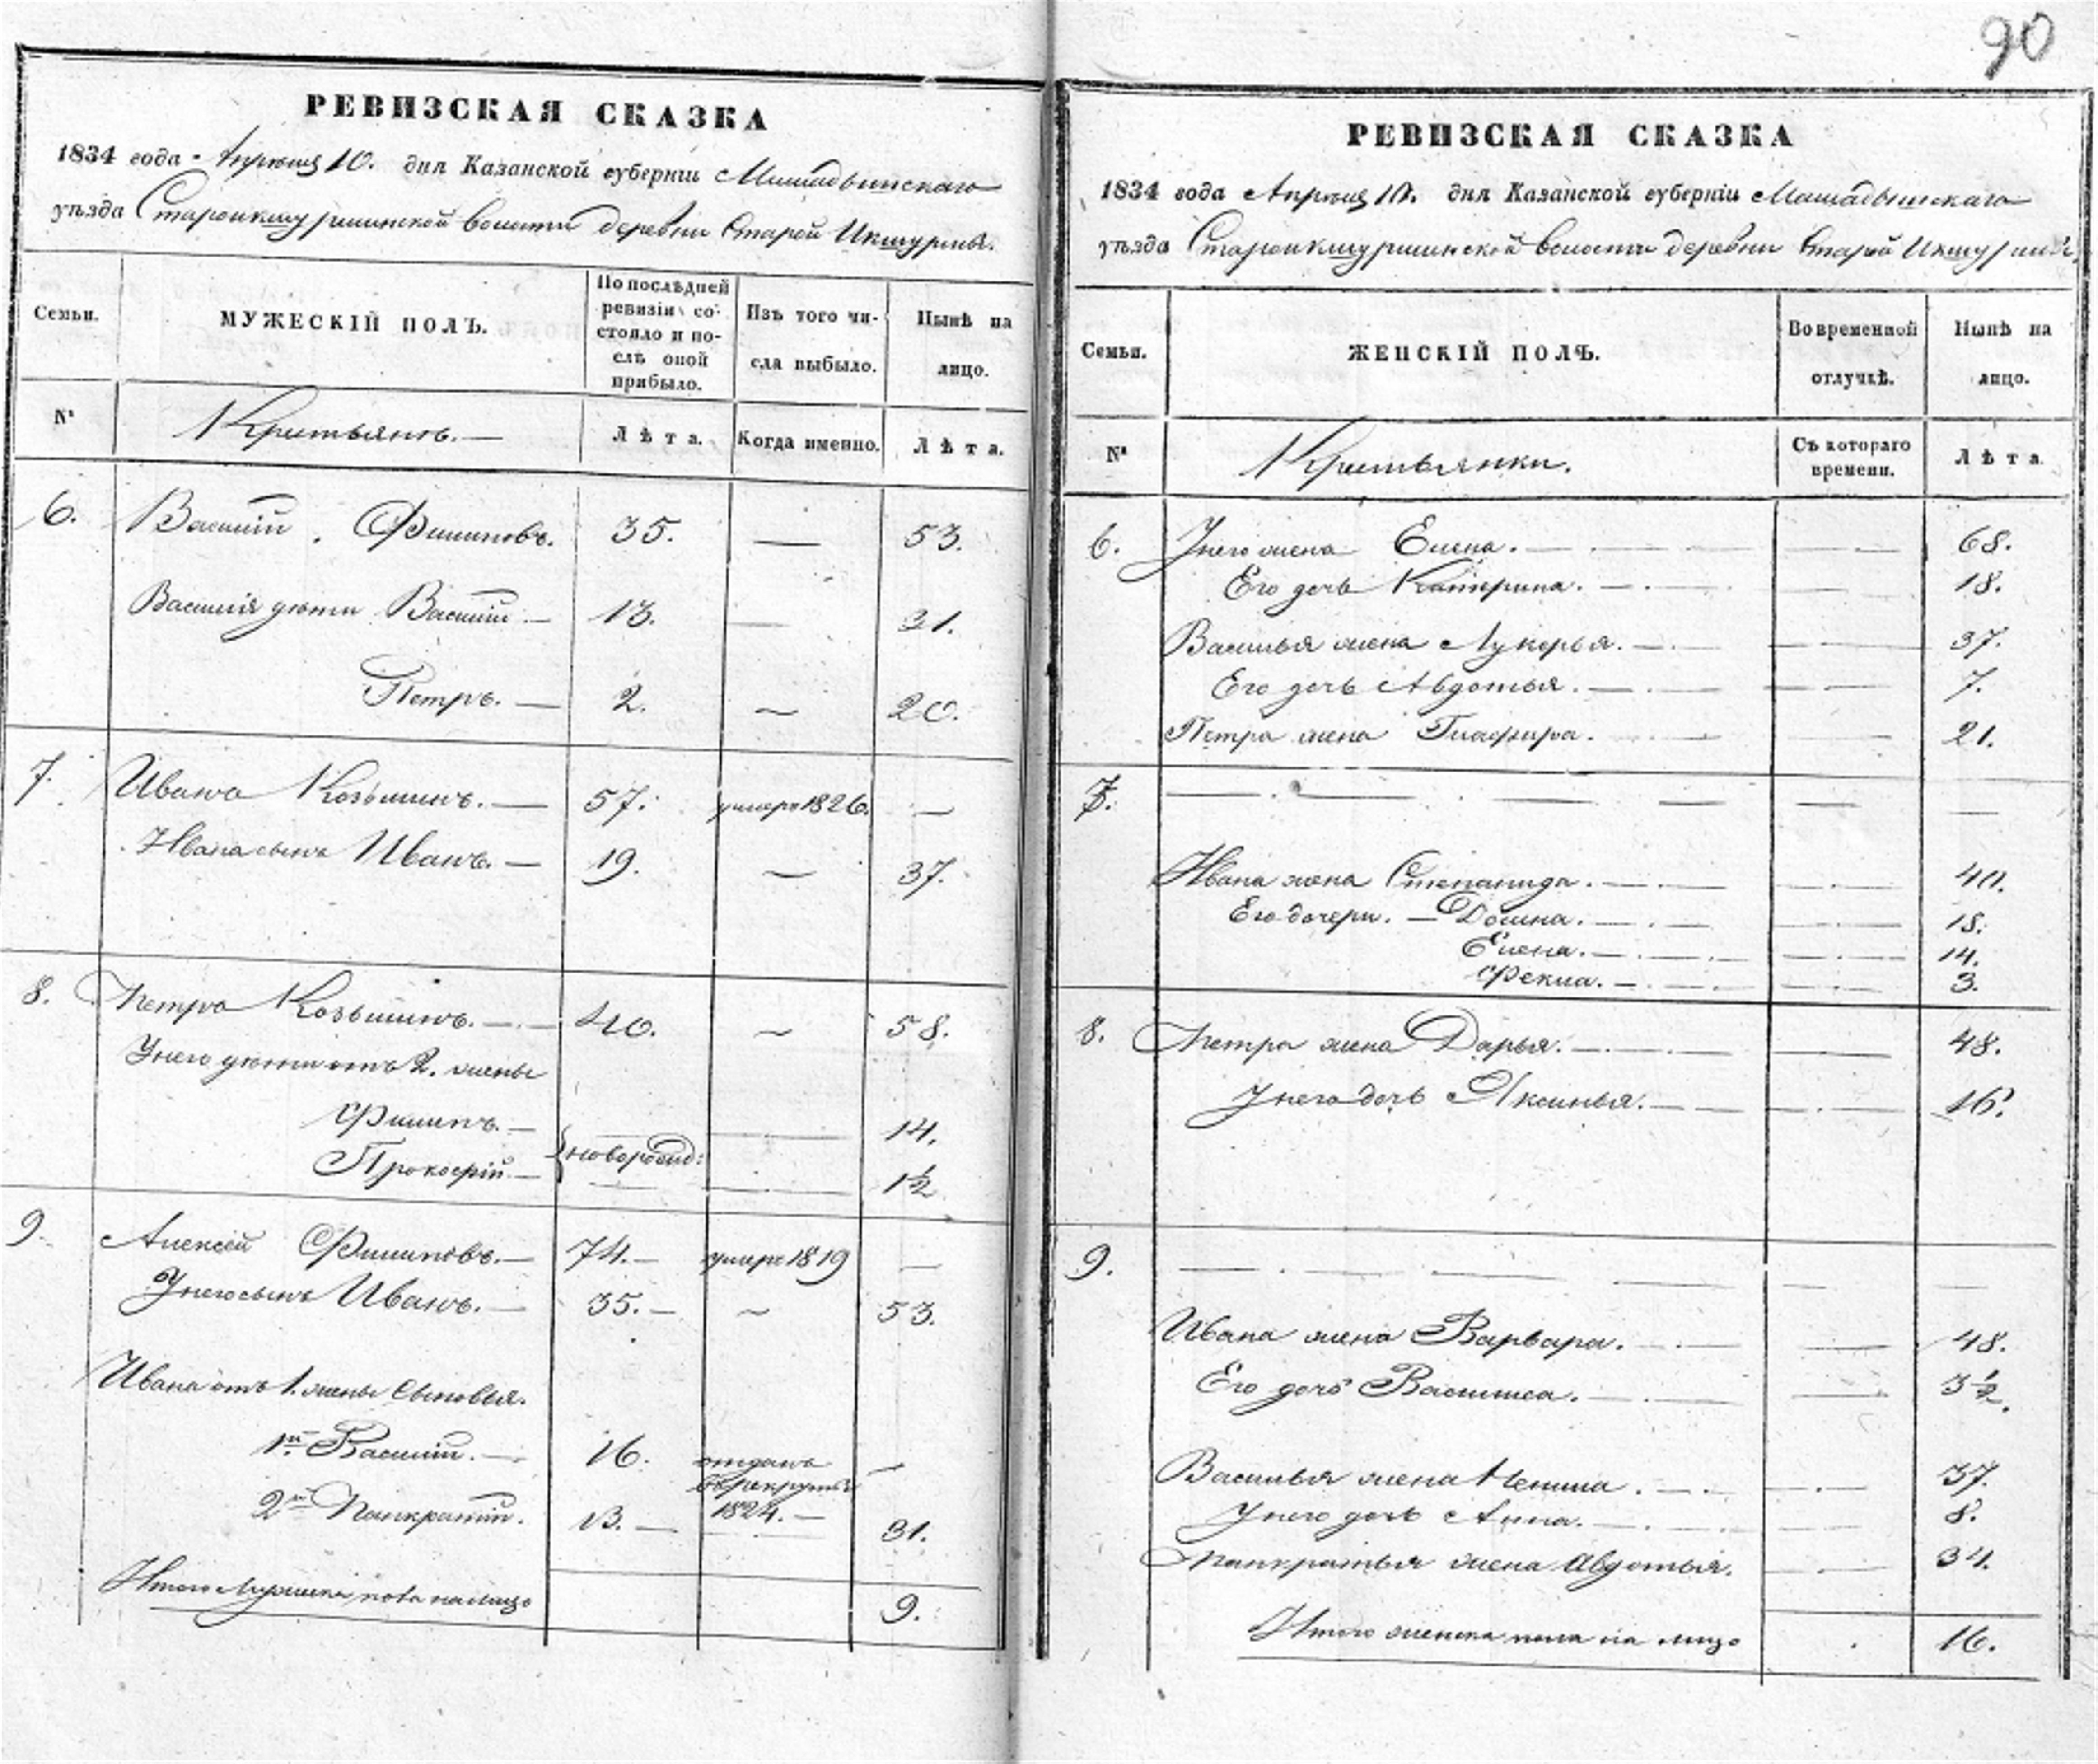 90
РЕВИЗСКАЯ СКАЗКА
1834 года Апреля 10. дня Казанской губернiи Мамадышскаго
уѣзда Староикшурминской волости деревни Старой Икшурмы.
Семьи.
МУЖЕСКIЙ ПОЛЪ.
По послѣдней ревизiи со-
стояло и по-
слѣ оной
прибыло.
Изъ того чи-
сла выбыло.
Нынѣ на
лицо.
№
Крестьянъ.
Лѣта.
Когда именно.
Лѣта.
6. Василiй Филиповъ. 35. — 53.
Василiя дѣти Василiй — 13. — 31.
Петръ. — 2. — 20.
7. Иванъ Козьминъ. — 57. умеръ 1826. —
Ивана сынъ Иванъ. — 19. — 37.
8. Петръ Козьминъ. — 40. — 58.
У него дѣти отъ 2. жены
Филипъ. — 14.
новорожд:
Прокофiй — 1½
9. Алексѣй Филиповъ. — 74. — умеръ 1819 —
У него сынъ Иванъ. — 35. — 53.
Ивана отъ 1. жены сыновья.
1й Василiй. — 16. отданъ
въ рекруты
1824. —
2й Панкратiй. 13. — 31.
Итого мужеска пола налицо 9.
РЕВИЗСКАЯ СКАЗКА
1834 года Апреля 10. дня Казанской губернiи Мамадышскаго
уѣзда Староикшурминской волости деревни Старой Икшурмы.
Семьи.
ЖЕНСКIЙ ПОЛЪ.
Во временной
отлучкѣ.
Нынѣ на
лицо.
№
Крестьянки.
Съ котораго
времени.
Лѣта
6. У него жена Елена. — — 68.
Его дочь Катерина. — — 18.
Василья жена Лукерья. — — 37.
Его дочь Авдотья. — — 7.
Петра жена Глафира. — 21.
7. — — —
Ивана жена Степанида. — — 40.
Его дочери. — Домна. — — 18.
Елена. — — 14.
Фекла. — — 3.
8. Петра жена Дарья. — — 48.
У него дочь Аксинья. — — 16.
9. — — —
Ивана жена Варвара. — — 48.
Его дочь Василиса. — — 3½.
Василья жена Ненила. — — 37.
У него дочь Анна. — — 8.
Панкратья жена Авдотья. — 34.
Итого женска пола на лицо 16.